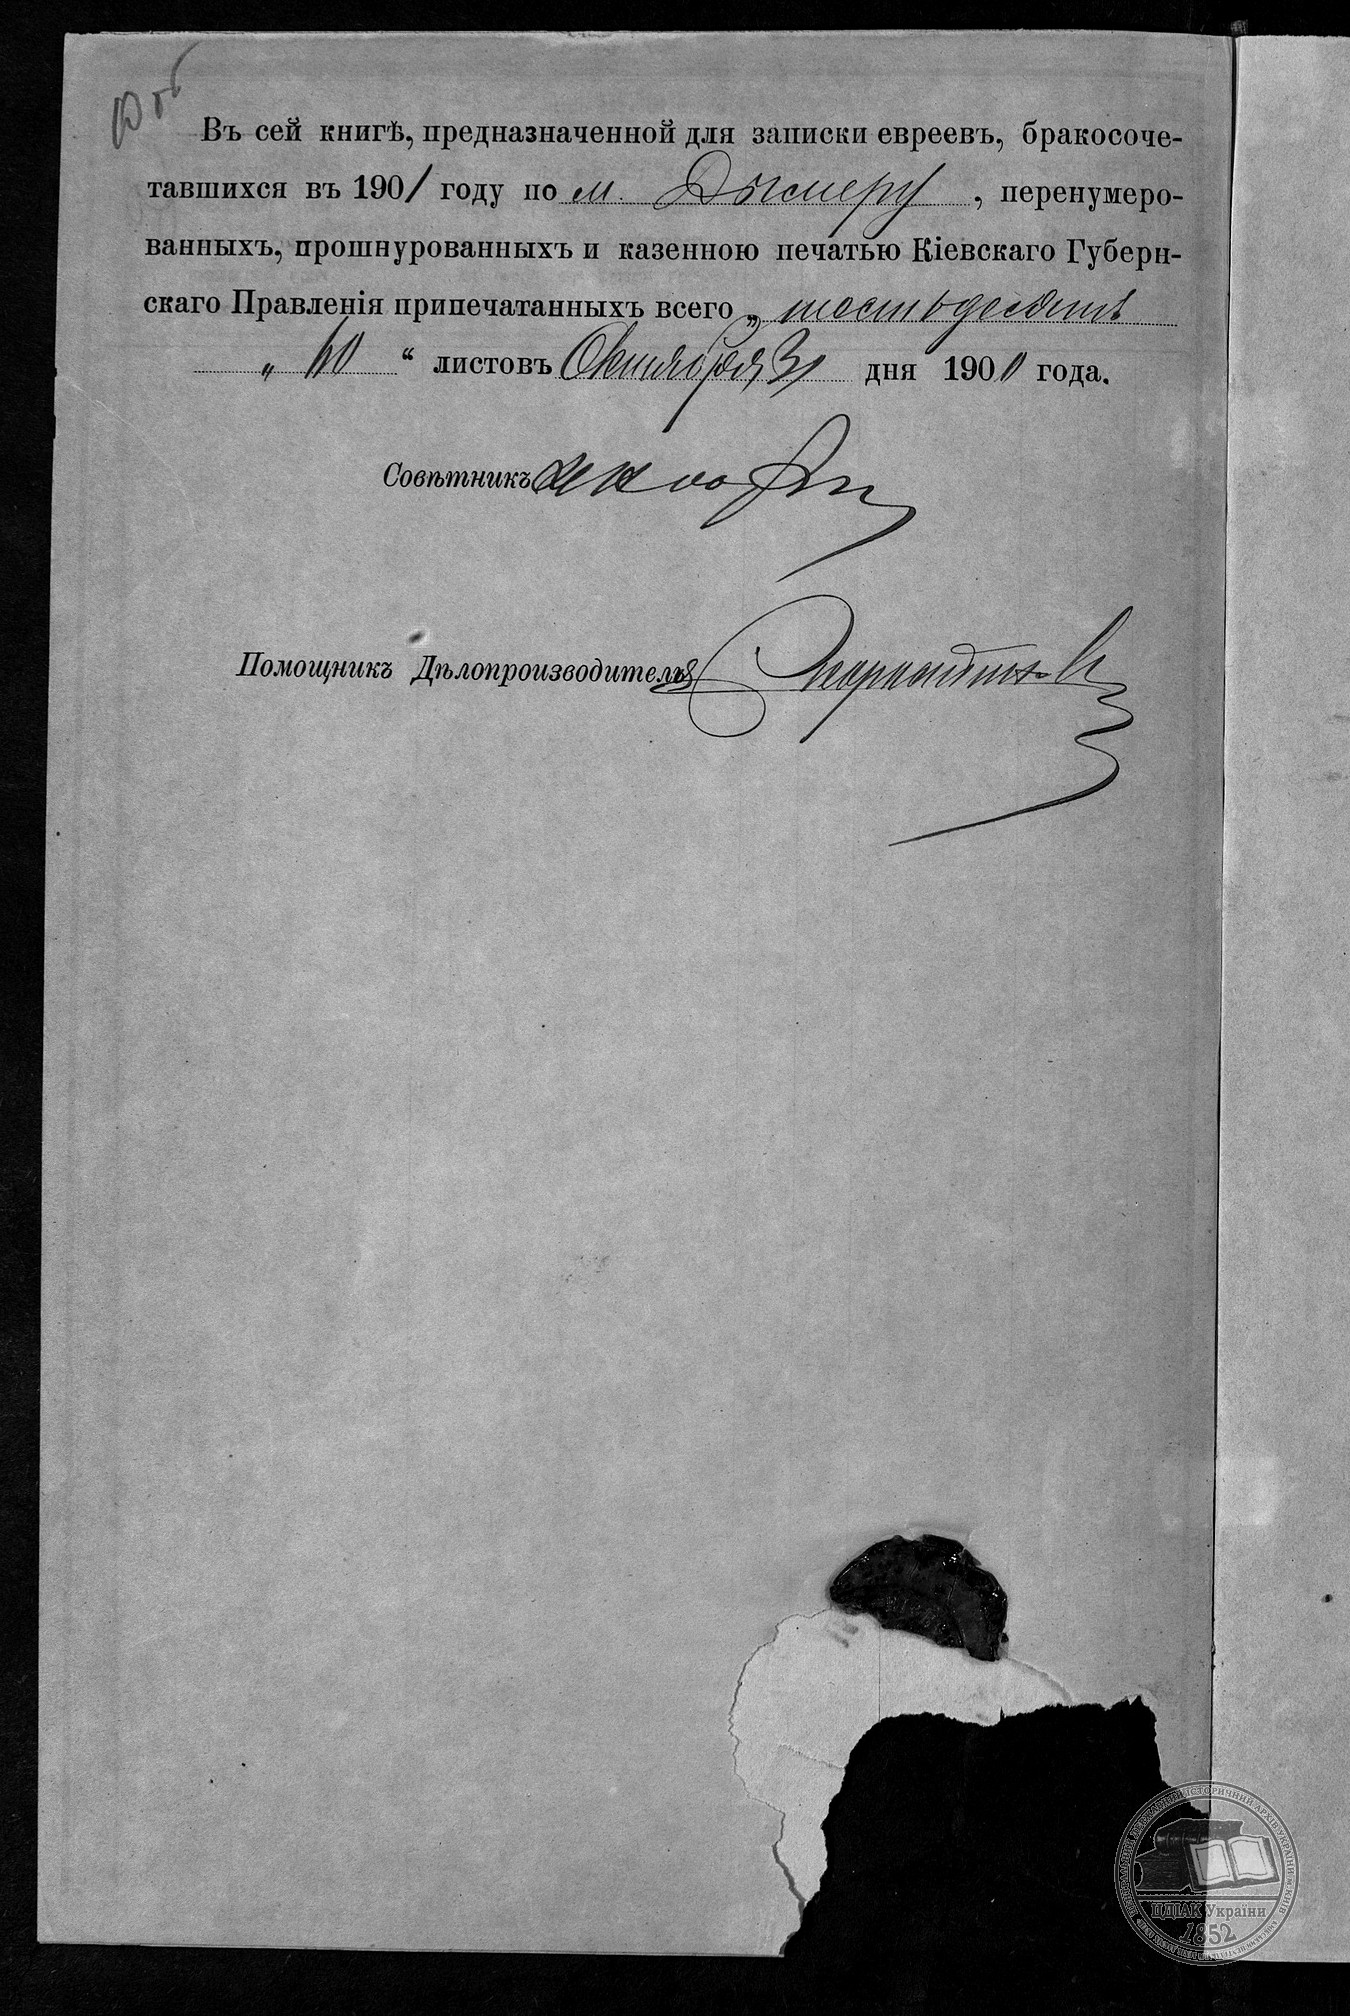 Въ сей книгѣ, предназначенной для записки евреевъ, бракосоче-
тавшихся въ 1901 году по м. Дымеру, перенумеро-
ванныхъ, прошнурованныхъ и казенною печатью Кіевскаго Губерн-
скаго Правленія припечатанныхъ всего „шестьдесятъ
„60“ листовъ Октября 31 дня 1900 года.
Совѣтникъ
Помощникъ Дѣлопроизводителя
ЦЕНТРАЛЬНИЙ ДЕРЖАВНИЙ ІСТОРИЧНИЙ АРХІВ УКРАЇНИ, М. КИЇВ
ЦДІАК України
1852